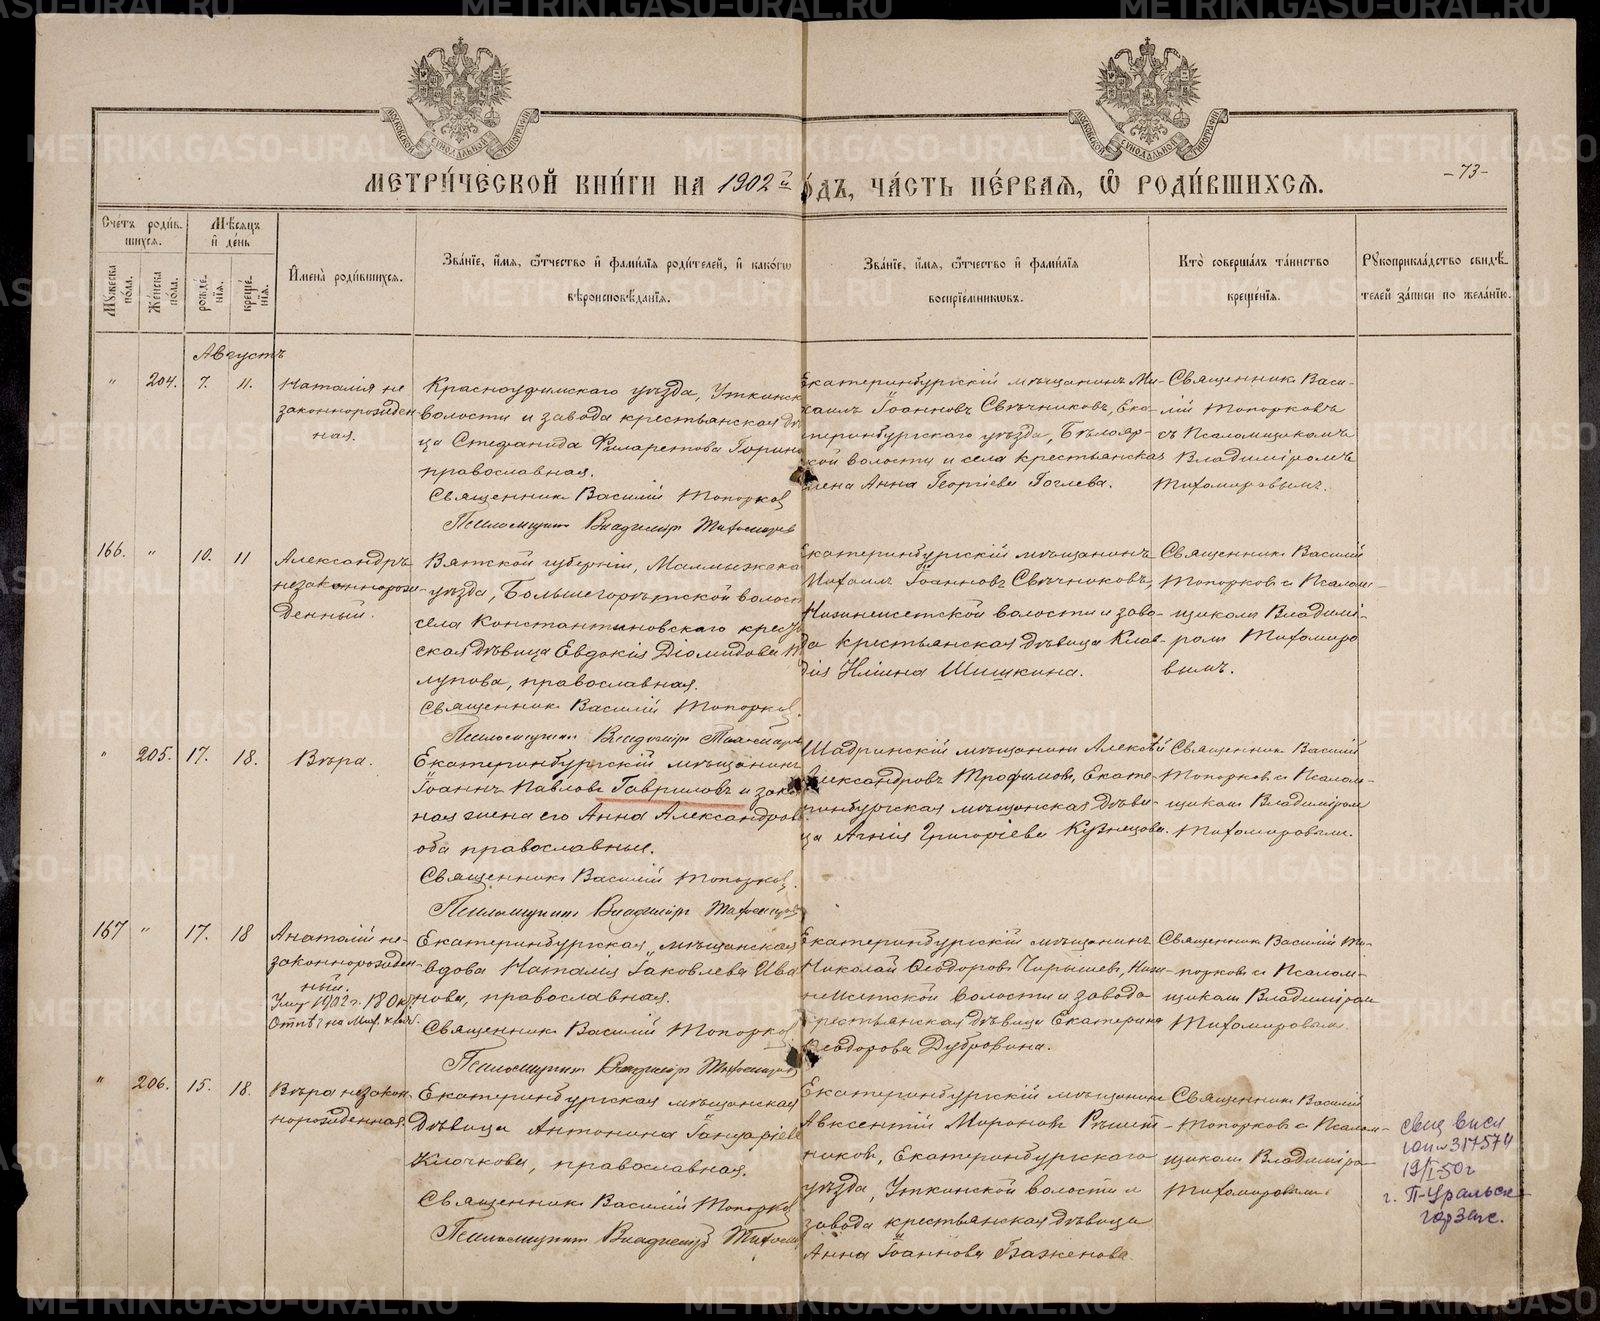 МЕТРИ́ЧЕСКОЙ КНИ́ГИ НА 1902й
ГО́ДЪ, ЧА́СТЬ ПЕ́РВАЯ, Ѡ РОДИ́ВШИХСЯ.
-73-
Сче́тъ роди́в-
шихся.
Мѣ́сяцъ
и҆ де́нь
Му́жеска
по́ла.
Же́нска
по́ла.
рожде́-
нїя.
креще́-
нїя.
И҆мена̀ роди́вшихся.
Зва́нїе, и҆́мя, ѻ҆́тчество и҆ фами́лїя роди́телей, и҆ како́гѡ
вѣроисповѣ́данїя.
Зва́нїе, и҆́мя, ѻ҆́тчество и҆ фами́лїя
воспрїе́мниковъ.
Кто̀ соверша́лъ та́инство
креще́нїя.
Рукоприкла́дство свидѣ́-
телей за́писи по жела́нїю.
Августъ
" 204. 7. 11.
Наталія не
законнорожден-
ная.
Красноуфимскаго уѣзда, Уткинск
волости и завода крестьянская дѣ
ца Стефанида Филаретова Горин
православная.
Священник Василій Топорков
Псаломщикъ Владимір Тихомиров
Екатеринбургскій мѣщанинъ Ми-
хаилъ Іоанновъ Свѣчниковъ, Ека-
теринбургскаго уѣзда, Бѣлояр-
кой волости и села крестьянская
жена Анна Георгіева Гоглева.
Священникъ Васи-
лій Топорковъ
съ Псаломщикомъ
Владиміромъ
Тихомировымъ.
166. " 10. 11
Александръ
незаконнорож-
денный.
Вятской губерніи, Малмыжска
уѣзда, Большегорѣтской волост
села Константиновскаго крестья
ская дѣвица Евдокія Діомидова
лупова, православная.
Священник Василій Топорков.
Псаломщикъ Владимір Тихомиров
Екатеринбургскій мѣщанинъ
Михаилъ Іоанновъ Свѣчниковъ,
Нижнеисетской волости и заво-
да крестьянская дѣвица Клав-
дія Ильина Шишкина.
Священник Василій
Топорков с Псалом-
щиком Владимі-
ром Тихомиро
вымъ.
" 205. 17. 18.
Вѣра.
Екатеринбургскій мѣщанинъ
Іоаннъ Павловъ Гавриловъ и зако
ная жена его Анна Александров
оба православные.
Священник Василій Топорков.
Псаломщикъ Владимір Тихомиров
Шадринскій мѣщанинъ Алексѣй
Александровъ Трофимов, Екате-
ринбургская мѣщанская дѣви-
ца Агнія Григоріева Кузнецова.
Священник Василій
Топорков с Псалом-
щиком Владиміром
Тихомировым.
167 " 17. 18
Анатолій не-
законнорожден-
ный.
Умер 1902 г. 18 Ок
Екатеринбургская мѣщанская
вдова Наталія Іаковлева Ива
нова, православная.
Священник Василій Топорков
Псаломщикъ Владимір Тихомиров
Екатеринбургскій мѣщанинъ
Николай Ѳеодоровъ Чирышев, Ниж-
неисетской волости и завода
крестьянская дѣвица Екатерина
Ѳеодорова Дубровина.
Священник Василій То-
порков с Псалом-
щиком Владиміром
Тихомировым.
" 206. 15. 18.
Вѣра незакон-
норожденная.
Екатеринбургская мѣщанская
дѣвица Антонина
Клочкова, православная.
Священник Василій Топорков
Псаломщикъ Владимір Тихоми
Екатеринбургскій мѣщанинъ
Авксентій Миронов Рѣшет-
ников, Екатеринбургскаго
уѣзда, Уткинской волости и
завода крестьянская дѣвица
Анна Іоаннова Баженова.
Священник Василій
Топорков с Псалом-
щиком Владиміро
Тихомировым.
317574
19/I-50г
г. П-Уральск
горзагс.
METRIKI.GASO-URAL.RU